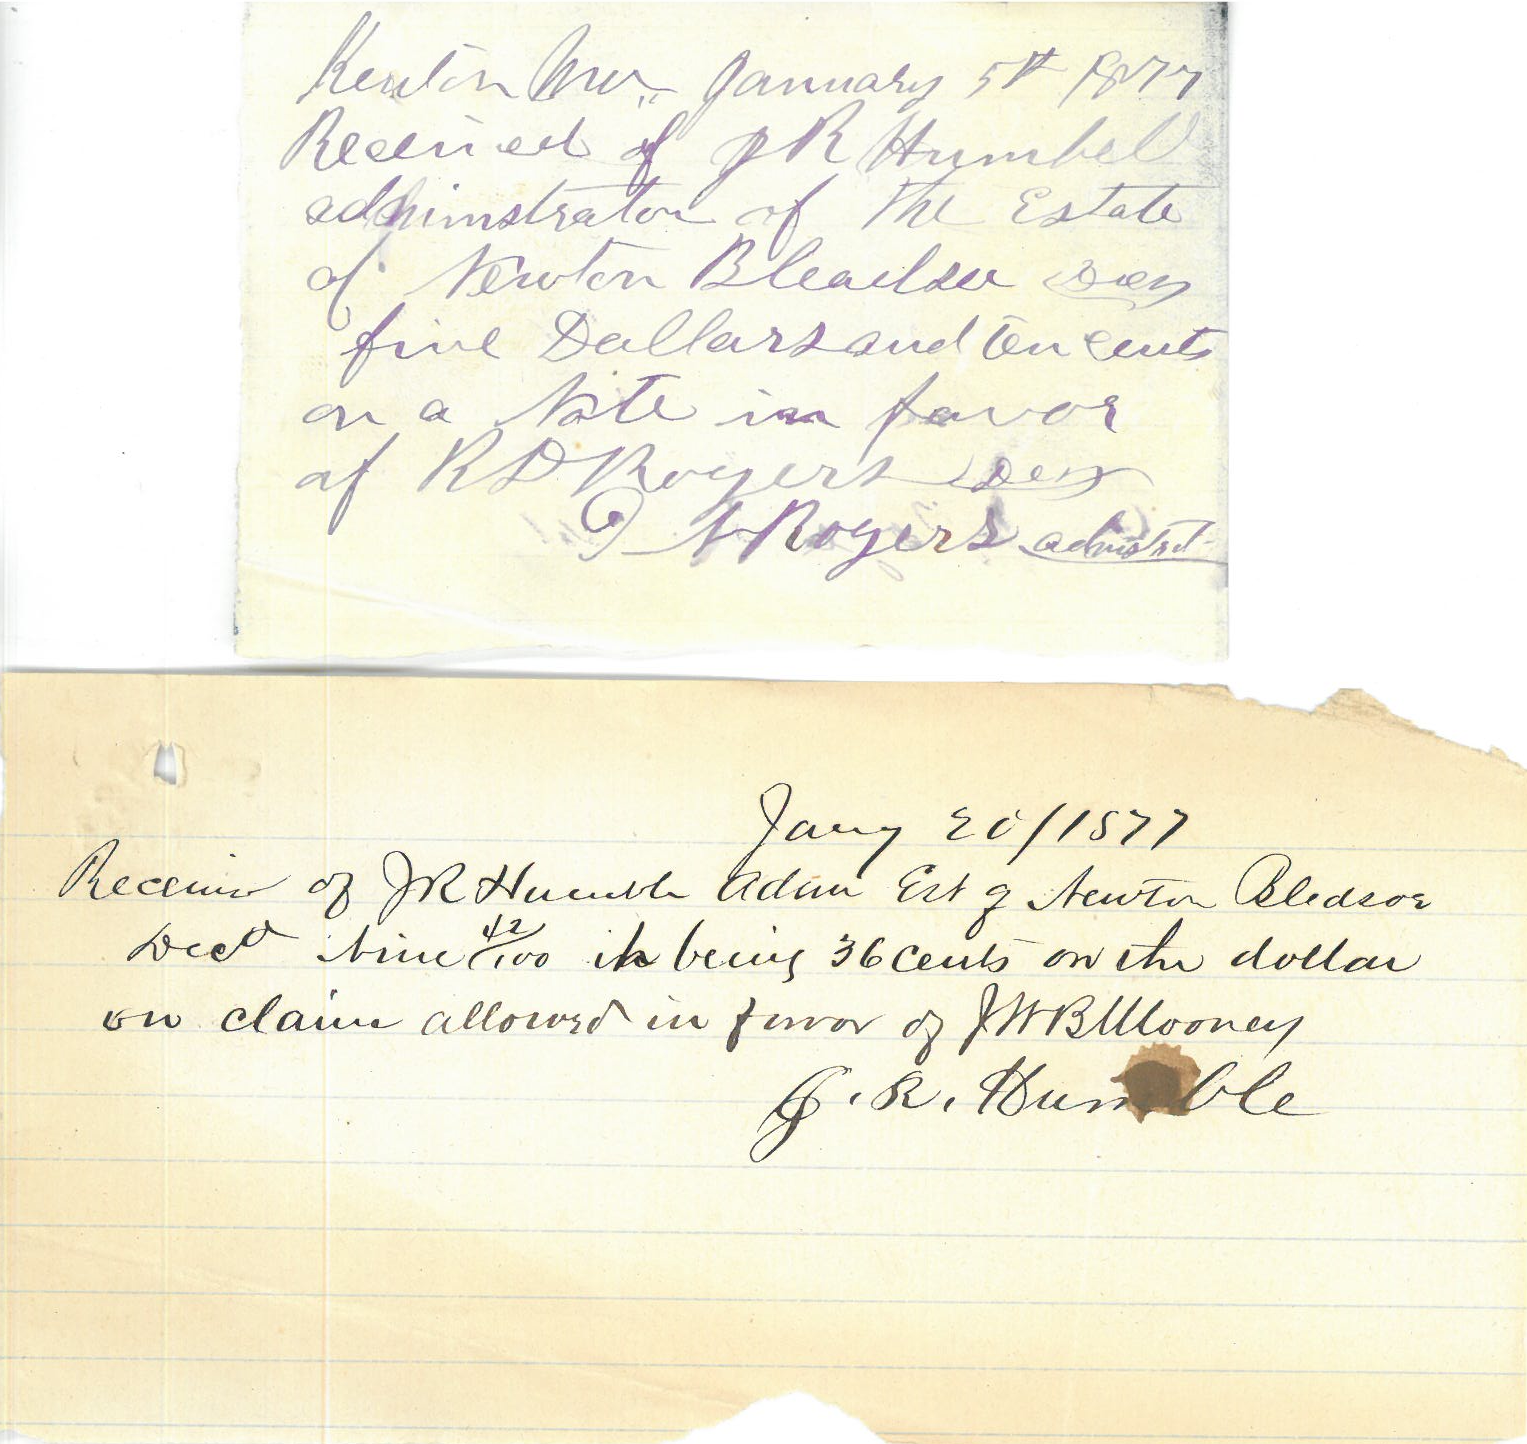 January 5th 1877
Received of J R Humbel
administrator of The Estate
of Newton Bleadsoe
five Dollars and ten cents
on a Note in favor
of R D Rogers
Rogers
Jany 20/1877
of JR Humble Adm Est of Newton Bledsoe
Decd Nine 42/100 being 36 cents on the dollar
on claim allowed in favor of J W B Mooney
J. R. Humble